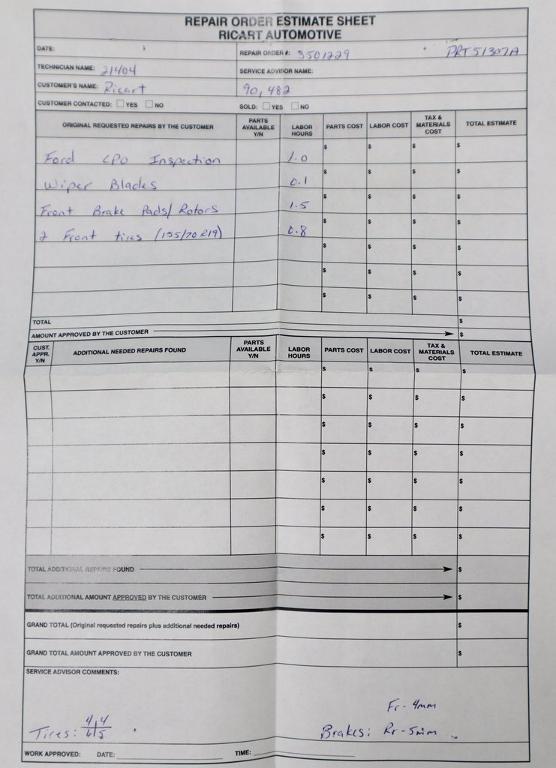 REPAIR ORDER ESTIMATE SHEET
RICART AUTOMOTIVE
DATE: REPAIR ORDER #: 3501229 PRT51307A
TECHNICIAN NAME: 21404 SERVICE ADVISOR NAME:
CUSTOMER'S NAME: Ricart 90,482
CUSTOMER CONTACTED: YES NO SOLD: YES NO
ORIGINAL REQUESTED REPAIRS BY THE CUSTOMER PARTS AVAILABLE Y/N LABOR HOURS PARTS COST LABOR COST TAX & MATERIALS COST TOTAL ESTIMATE
Ford CPO Inspection 1.0 $ $ $ $
Wiper Blades 0.1 $ $ $ $
Front Brake Pads/Rotors 1.5 $ $ $ $
2 Front tires (155/70R19) 0.8 $ $ $ $
$ $ $ $
$ $ $ $
$ $ $ $
TOTAL $
AMOUNT APPROVED BY THE CUSTOMER $
CUST. APPR. Y/N ADDITIONAL NEEDED REPAIRS FOUND PARTS AVAILABLE Y/N LABOR HOURS PARTS COST LABOR COST TAX & MATERIALS COST TOTAL ESTIMATE
$ $ $ $
$ $ $ $
$ $ $ $
$ $ $ $
$ $ $ $
$ $ $ $
$ $ $ $
TOTAL ADDITIONAL REPAIRS FOUND $
TOTAL ADDITIONAL AMOUNT APPROVED BY THE CUSTOMER $
GRAND TOTAL (Original requested repairs plus additional needed repairs) $
GRAND TOTAL AMOUNT APPROVED BY THE CUSTOMER $
SERVICE ADVISOR COMMENTS:
Fr- 4mm
Tires: 4|4 6|5 Brakes: Rr-5mm
WORK APPROVED: DATE: TIME: